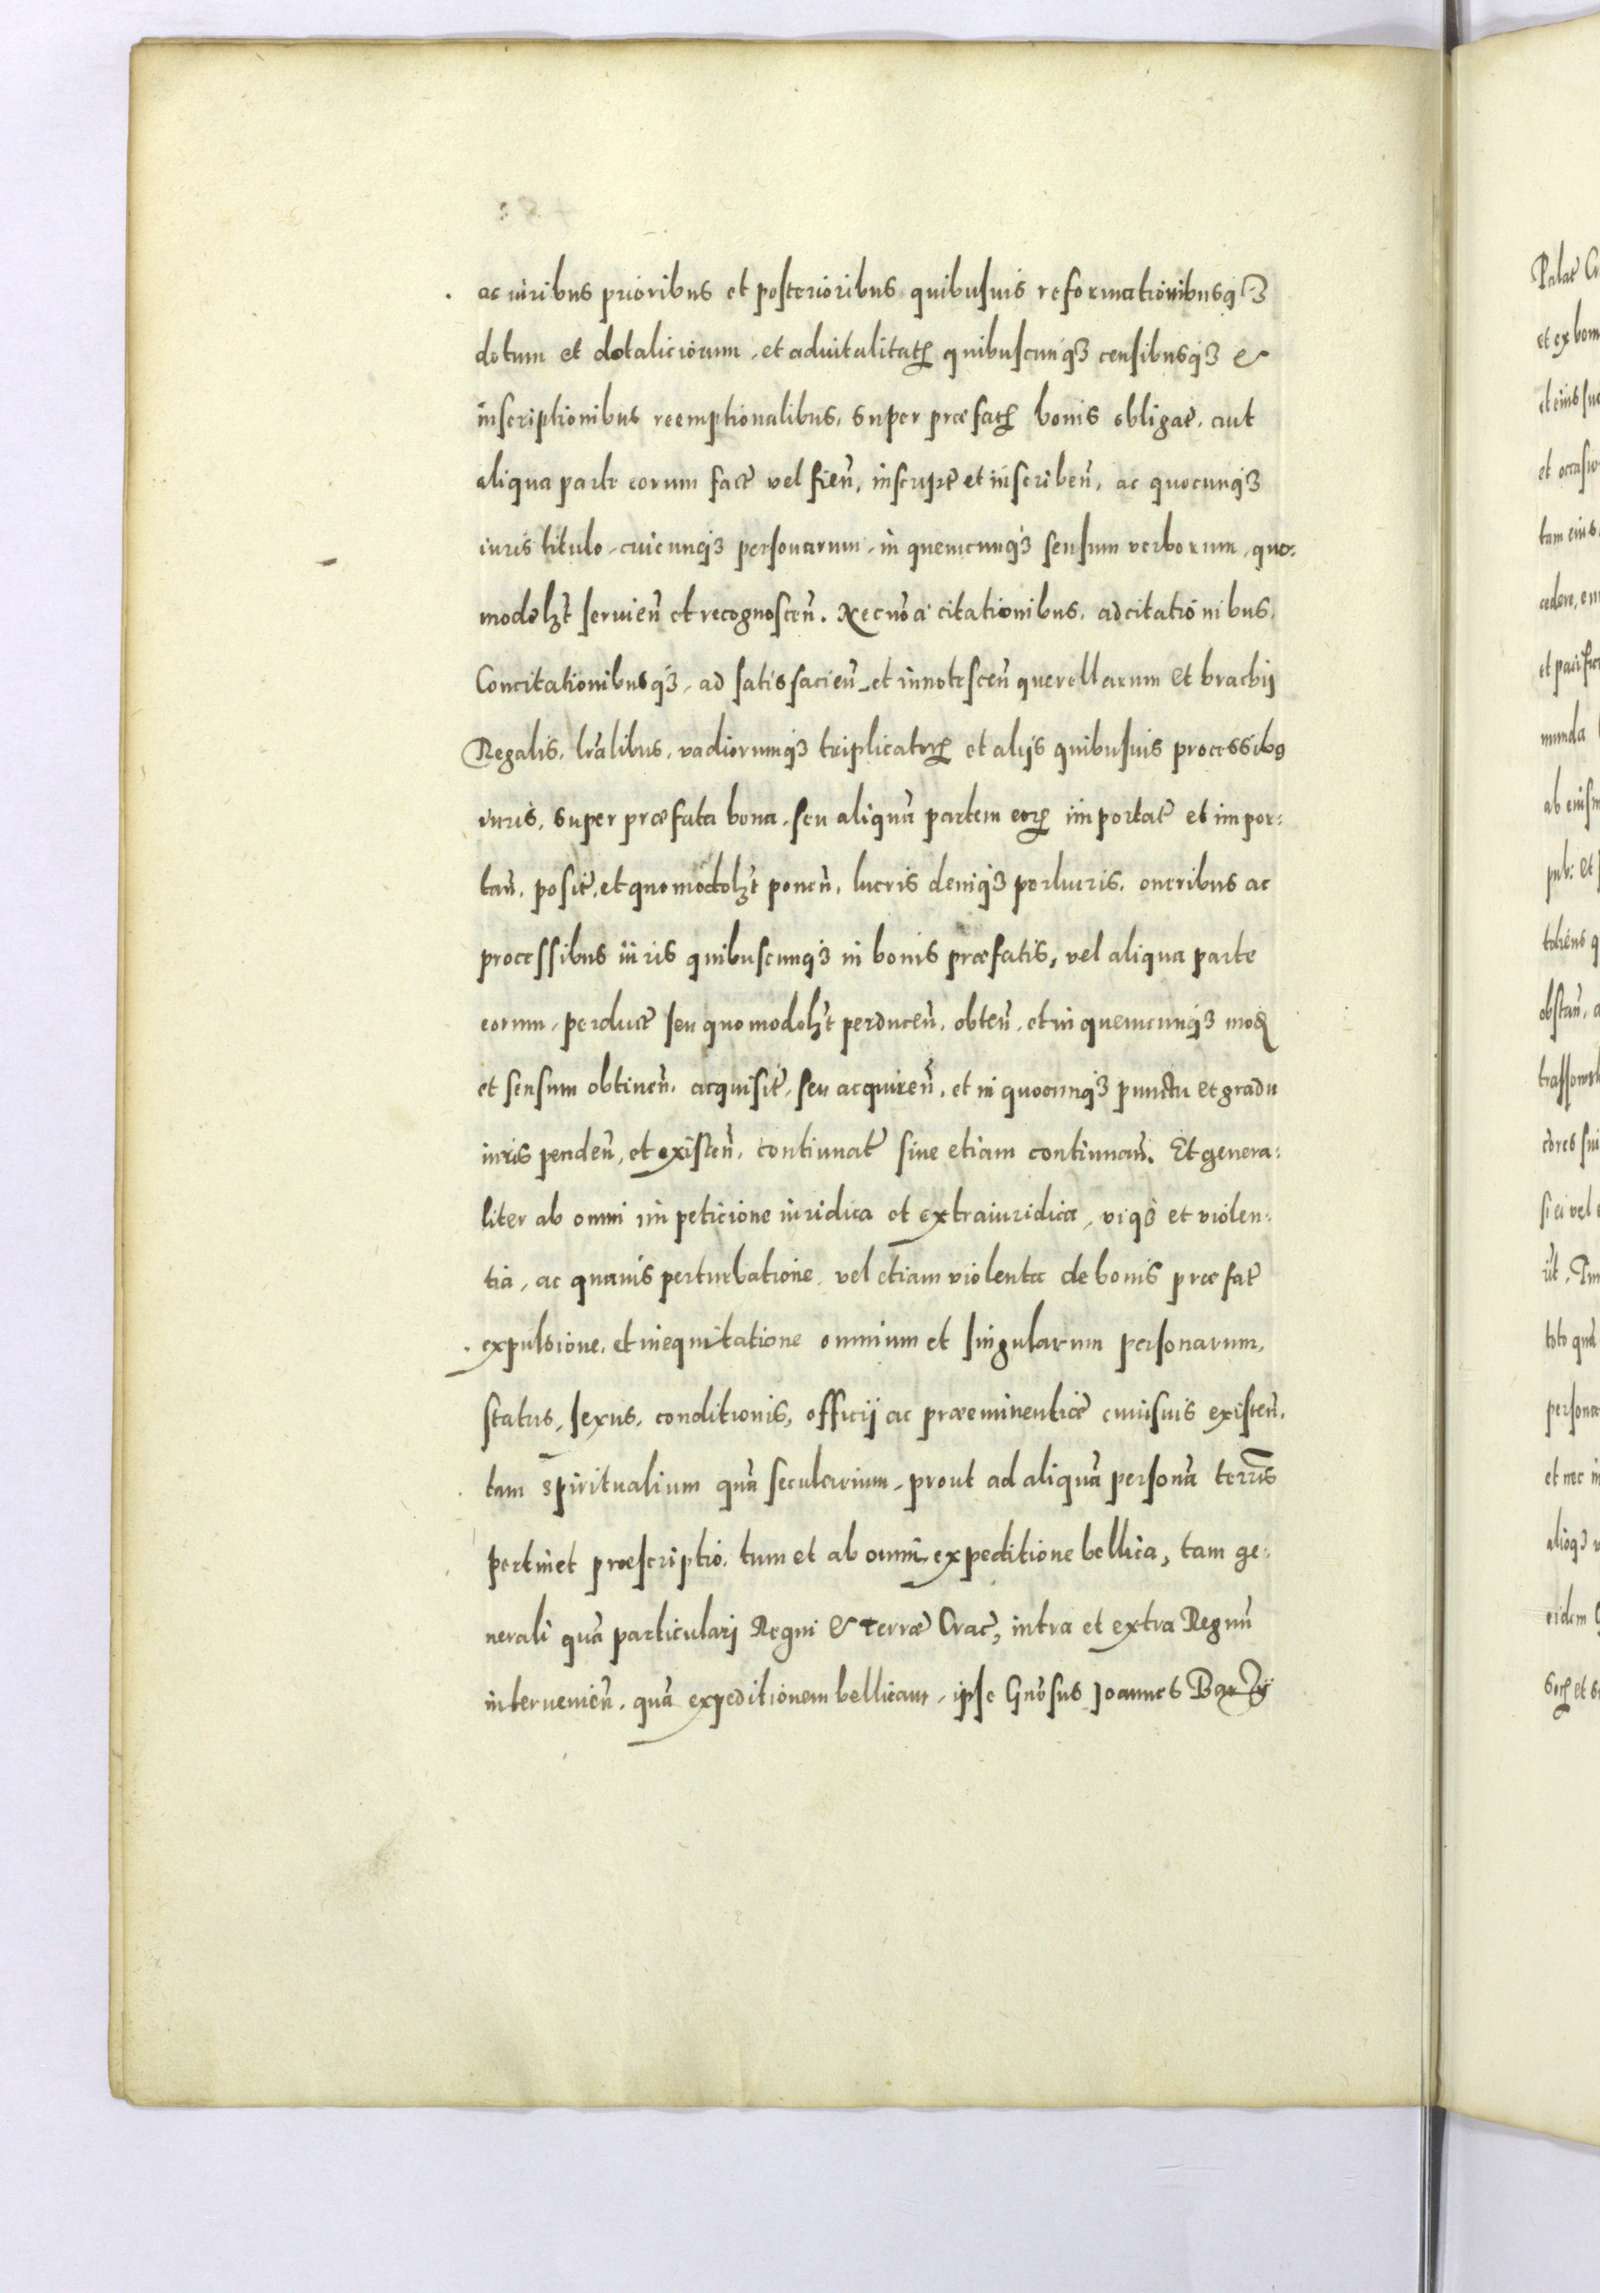 ac iuribus prioribus et posterioribus quibusuis reformationibusq3
dotum et dotaliciorum, et aduitalitatꝝ quibuscunq3 censibusq3 &
inscriptionibus reemptionalibus, super præfatꝝ bonis obligat̃, aut
aliqua parte eorum fact̃ vel fień, inscript̃ et inscribeñ, ac quocunq3
iuris titulo, cuicunq3 personarum, in quemcunq3 sensum verborum, quo:
modolꝫt seruień et recognosceñ. Necnõ á citationibus, adcitationibus,
Concitationibusq3, ad satisfacień, et innotesceñ querellarum et brachij
Regalis, lr̃alibus, vadiorumq3 triplicatorꝝ et alijs quibusuis processibꝰ
iuris, super præfata bona, seu aliquã partem eorꝝ importat̃ et impor:
tañ, posit̃, et quomodolꝫt poneñ, lucris deniq3 perlucris, oneribus ac
processibus iuris quibuscunq3 in bonis præfatis, vel aliqua parte
eorum, perduct̃ seu quomodolꝫt perduceñ, obteñ, et in quemcunq3 modũ
et sensum obtineñ, acquisit̃, seu acquireñ, et in quocunq3 punctu et gradu
iuris pendeñ, et existeñ, continuat̃ siue etiam continuañ. Et genera:
liter ab omni impeticione iuridica et extraiuridica, viqȝ et violen:
tia, ac quauis perturbatione, vel etiam violenta de bonis præfat̃
expulsione, et inequitatione omnium et singularum personarum,
status, sexus, conditionis, officij ac præeminentiæ cuiusuis existeñ,
tam spiritualium quã secularium, prout ad aliquã personã terr̃is
pertinet præscriptio, tum et ab omni expeditione bellica, tam ge:
nerali quã particulari Regni & terræ Crac̃, intra et extra Regnũ
interuenień, quã expeditionem bellicam, ipse Gnõsus Joannes Barzÿ